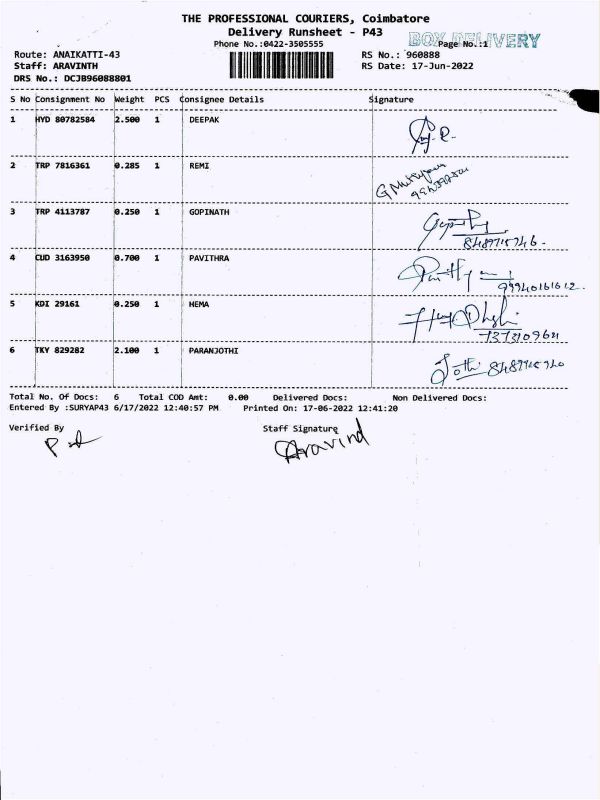 THE PROFESSIONAL COURIERS, Coimbatore
Delivery Runsheet - P43
BOX DELIVERY
Phone No.:0422-3505555 Page No.:1
Route: ANAIKATTI-43 RS No.: 960888
Staff: ARAVINTH RS Date: 17-Jun-2022
DRS No.: DCJB96088801
S No Consignment No Weight PCS Consignee Details Signature
1 HYD 80782584 2.500 1 DEEPAK
2 TRP 7816361 0.285 1 REMI
3 TRP 4113787 0.250 1 GOPINATH
4 CUD 3163950 0.700 1 PAVITHRA
99940161612.
5 KDI 29161 0.250 1 HEMA
6 TKY 829282 2.100 1 PARANJOTHI
Jothi
Total No. Of Docs: 6 Total COD Amt: 0.00 Delivered Docs: Non Delivered Docs:
Entered By :SURYAP43 6/17/2022 12:40:57 PM Printed On: 17-06-2022 12:41:20
Verified By Staff Signature
Aravind